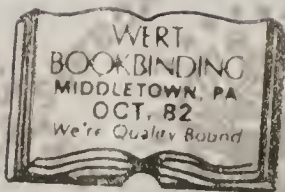 WERT
BOOKBINDING
MIDDLETOWN, PA
OCT. 82
We're Quality Bound